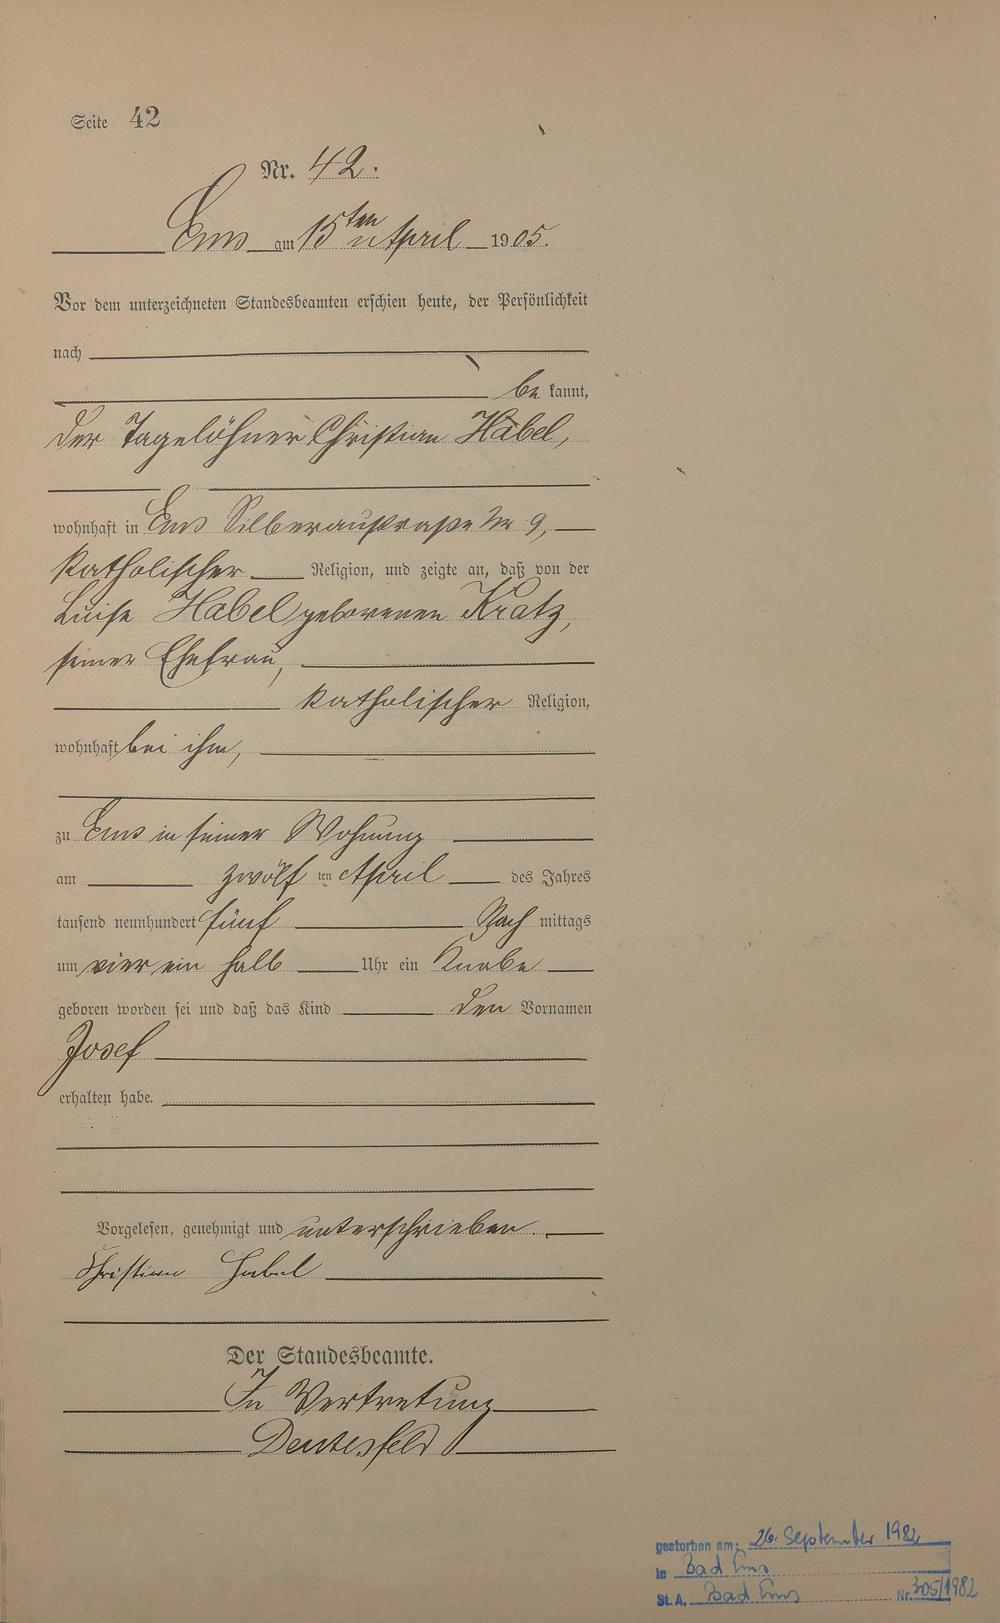 Seite 42
Nr. 42.
Ems am 15ten April 1905.
Vor dem unterzeichneten Standesbeamten erschien heute, der Persönlichkeit
nach
be kannt,
der Tagelöhner Christian Habel,
wohnhaft in Ems Silberaustraße Nr 9,
katholischer Religion, und zeigte an, daß von der
Luise Habel geborenen Kratz,
seiner Ehefrau,
katholischer Religion,
wohnhaft bei ihm,
zu Ems in seiner Wohnung
am zwölf ten April des Jahres
tausend neunhundert fünf Nach mittags
um vier ein halb Uhr ein Knabe
geboren worden sei und daß das Kind den Vornamen
Josef
erhalten habe.
Vorgelesen, genehmigt und unterschrieben.
Christian Habel
Der Standesbeamte.
In Vertretung
gestorben am: 26. September 1982
in Bad Ems
St.A. Bad Ems Nr. 305/1982